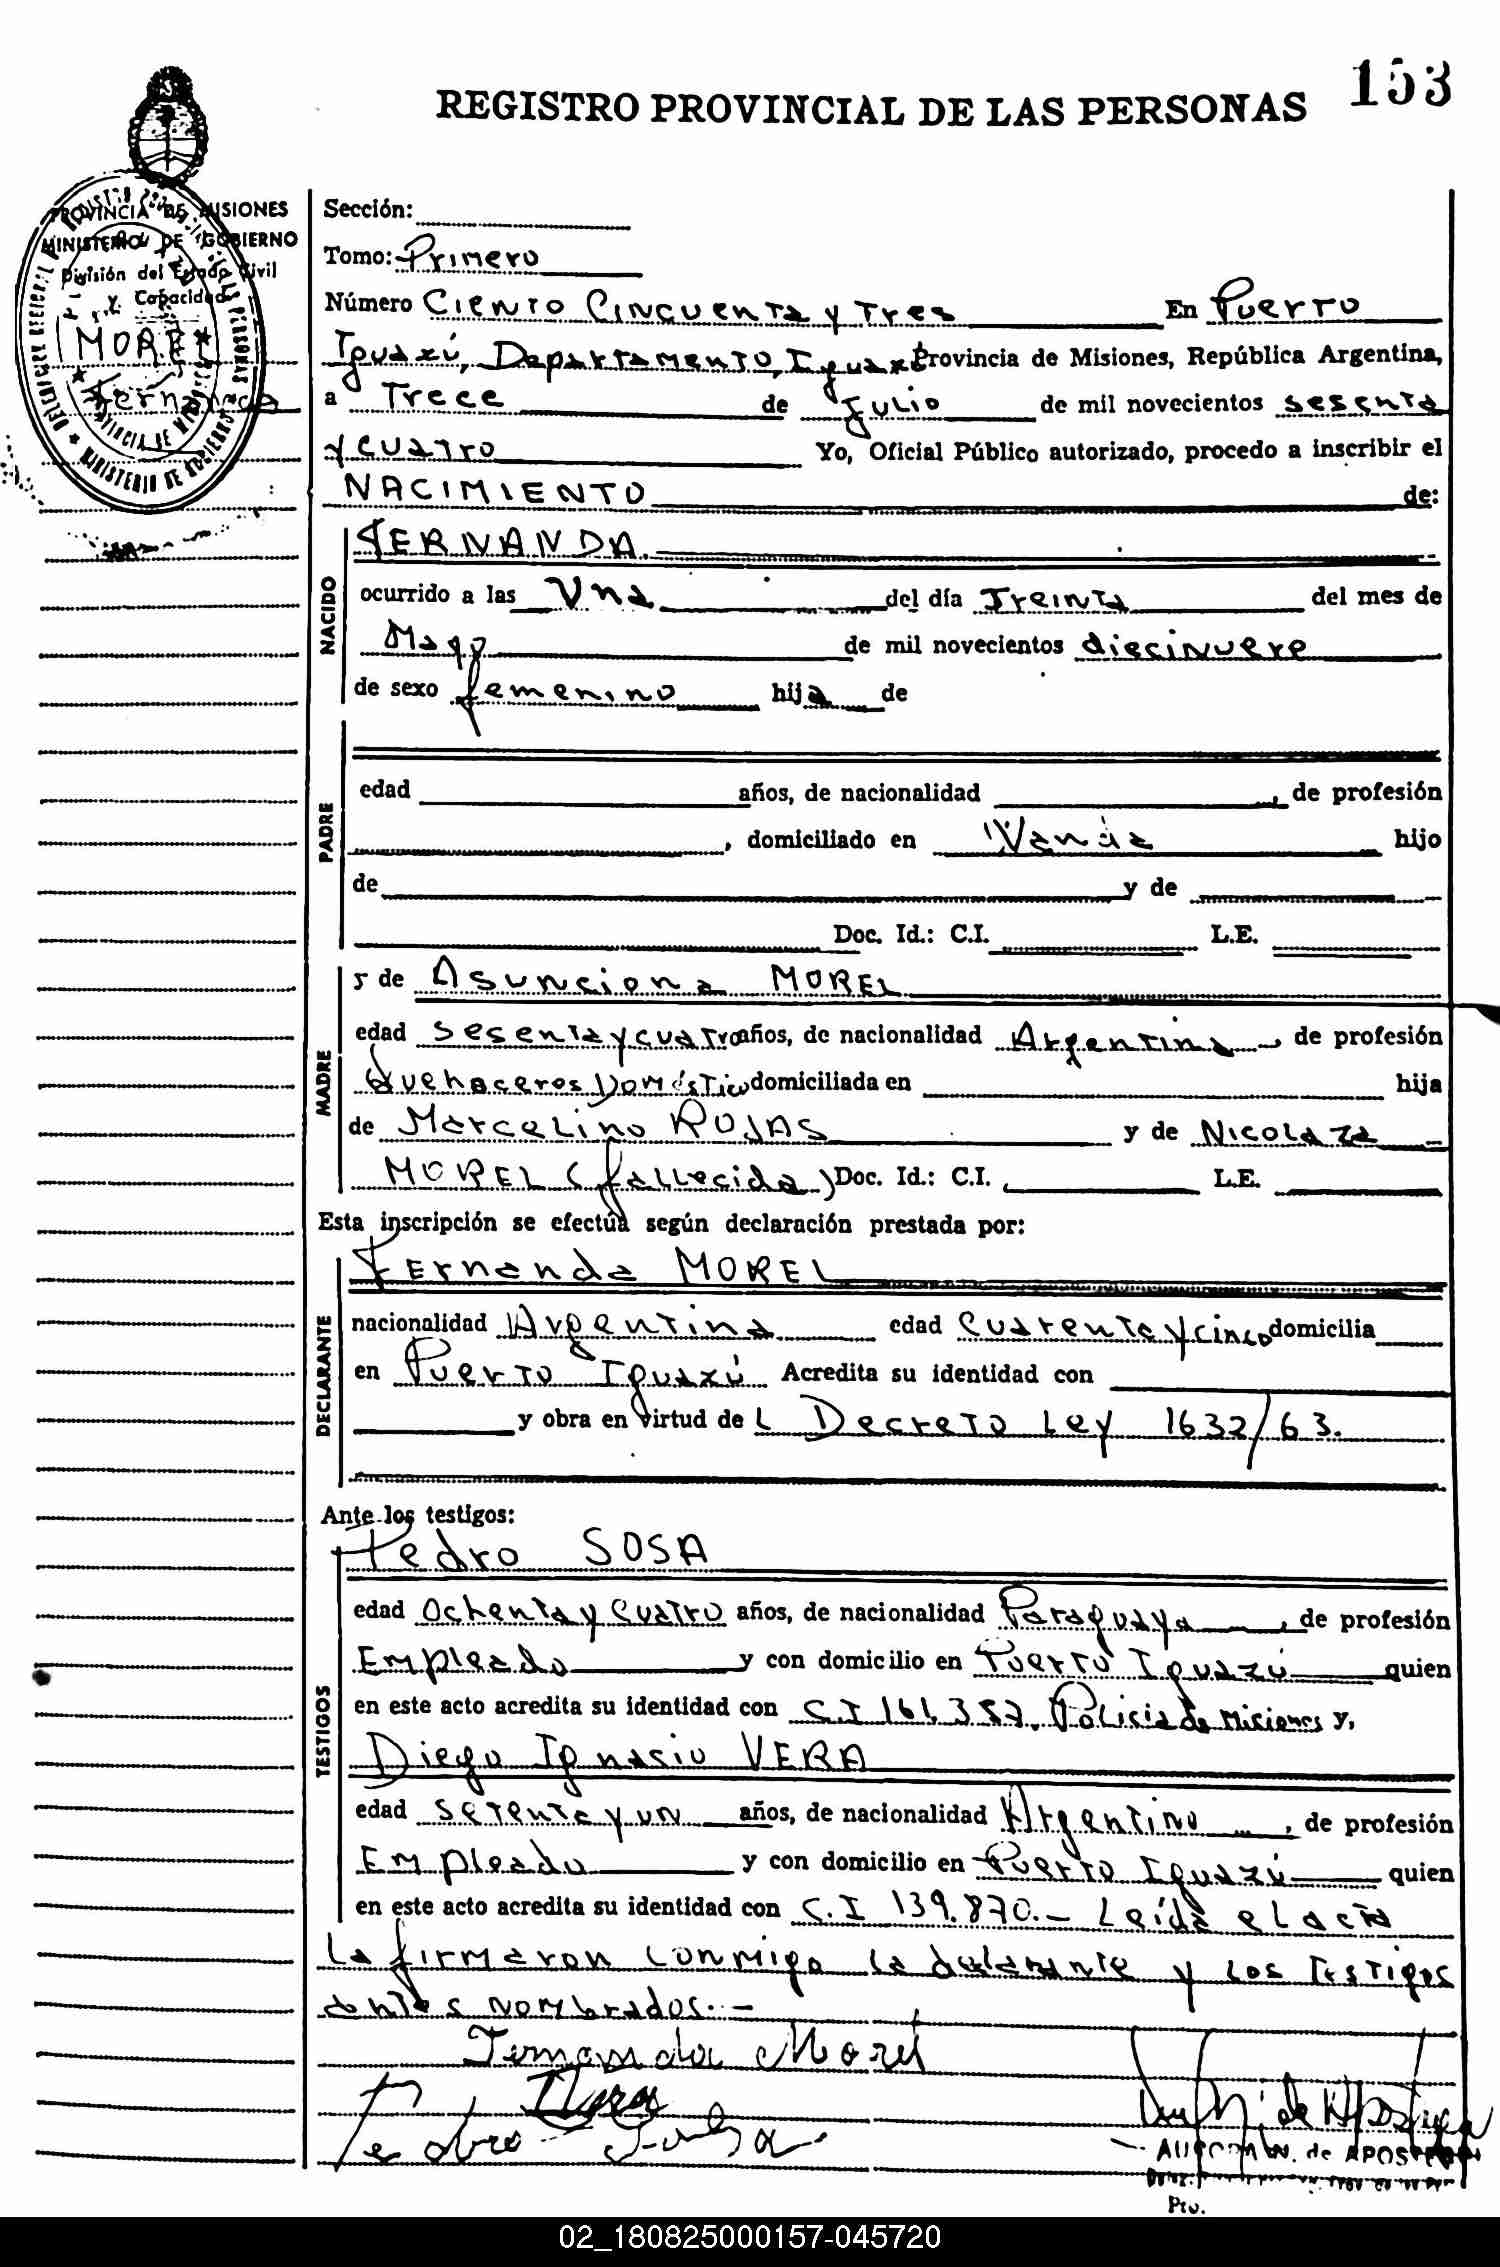 153
REGISTRO PROVINCIAL DE LAS PERSONAS
PROVINCIA DE MISIONES
MINISTERIO DE GOBIERNO
División del Estado Civil
y Capacidad
MOREL
Fernanda
Sección:
Tomo: Primero
Número Ciento Cincuenta y Tres En Puerto
Iguazú, Departamento, Iguazú Provincia de Misiones, República Argentina,
a Trece de Julio de mil novecientos sesenta
y cuatro Yo, Oficial Público autorizado, procedo a inscribir el
NACIMIENTO de:
NACIDO
FERNANDA
ocurrido a las Una del día Treinta del mes de
Mayo de mil novecientos diecinueve
de sexo femenino hija de
PADRE
edad años, de nacionalidad , de profesión
, domiciliado en Wanda hijo
de y de
Doc. Id.: C.I. L.E.
MADRE
y de Asunciona MOREL
edad sesenta y cuatro años, de nacionalidad Argentina, de profesión
Quehaceres Doméstico domiciliada en hija
de Marcelino ROJAS y de Nicolaza
MOREL (fallecida) Doc. Id.: C.I. L.E.
Esta inscripción se efectúa según declaración prestada por:
DECLARANTE
Fernanda MOREL
nacionalidad Argentina edad Cuarenta y cinco domicilia
en Puerto Iguazú Acredita su identidad con
y obra en virtud de L Decreto Ley 1632/63.
Ante los testigos:
TESTIGOS
Pedro SOSA
edad Ochenta y Cuatro años, de nacionalidad Paraguaya, de profesión
Empleado y con domicilio en Puerto Iguazú quien
en este acto acredita su identidad con C.I 161.357. Policia de Misiones y,
Diego Ignacio VERA
edad setenta y un años, de nacionalidad Argentino, de profesión
Empleado y con domicilio en Puerto Iguazú quien
en este acto acredita su identidad con C.I 139.870.- Leída el acta
la firmaron conmigo la declarante y los testigos
antes nombrados.-
Fernanda Morel
Vera
Pedro
de APOSTOLI
Pto.
02_180825000157-045720